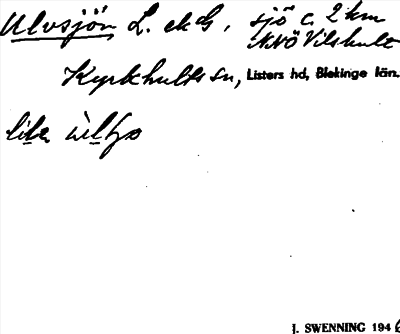 Ulvsjön L. ekG, sjö c. 2 km
NNÖ Vilshult
Kyrkhults sn, Listers hd, Blekinge län.
lila
J. SWENNING 194